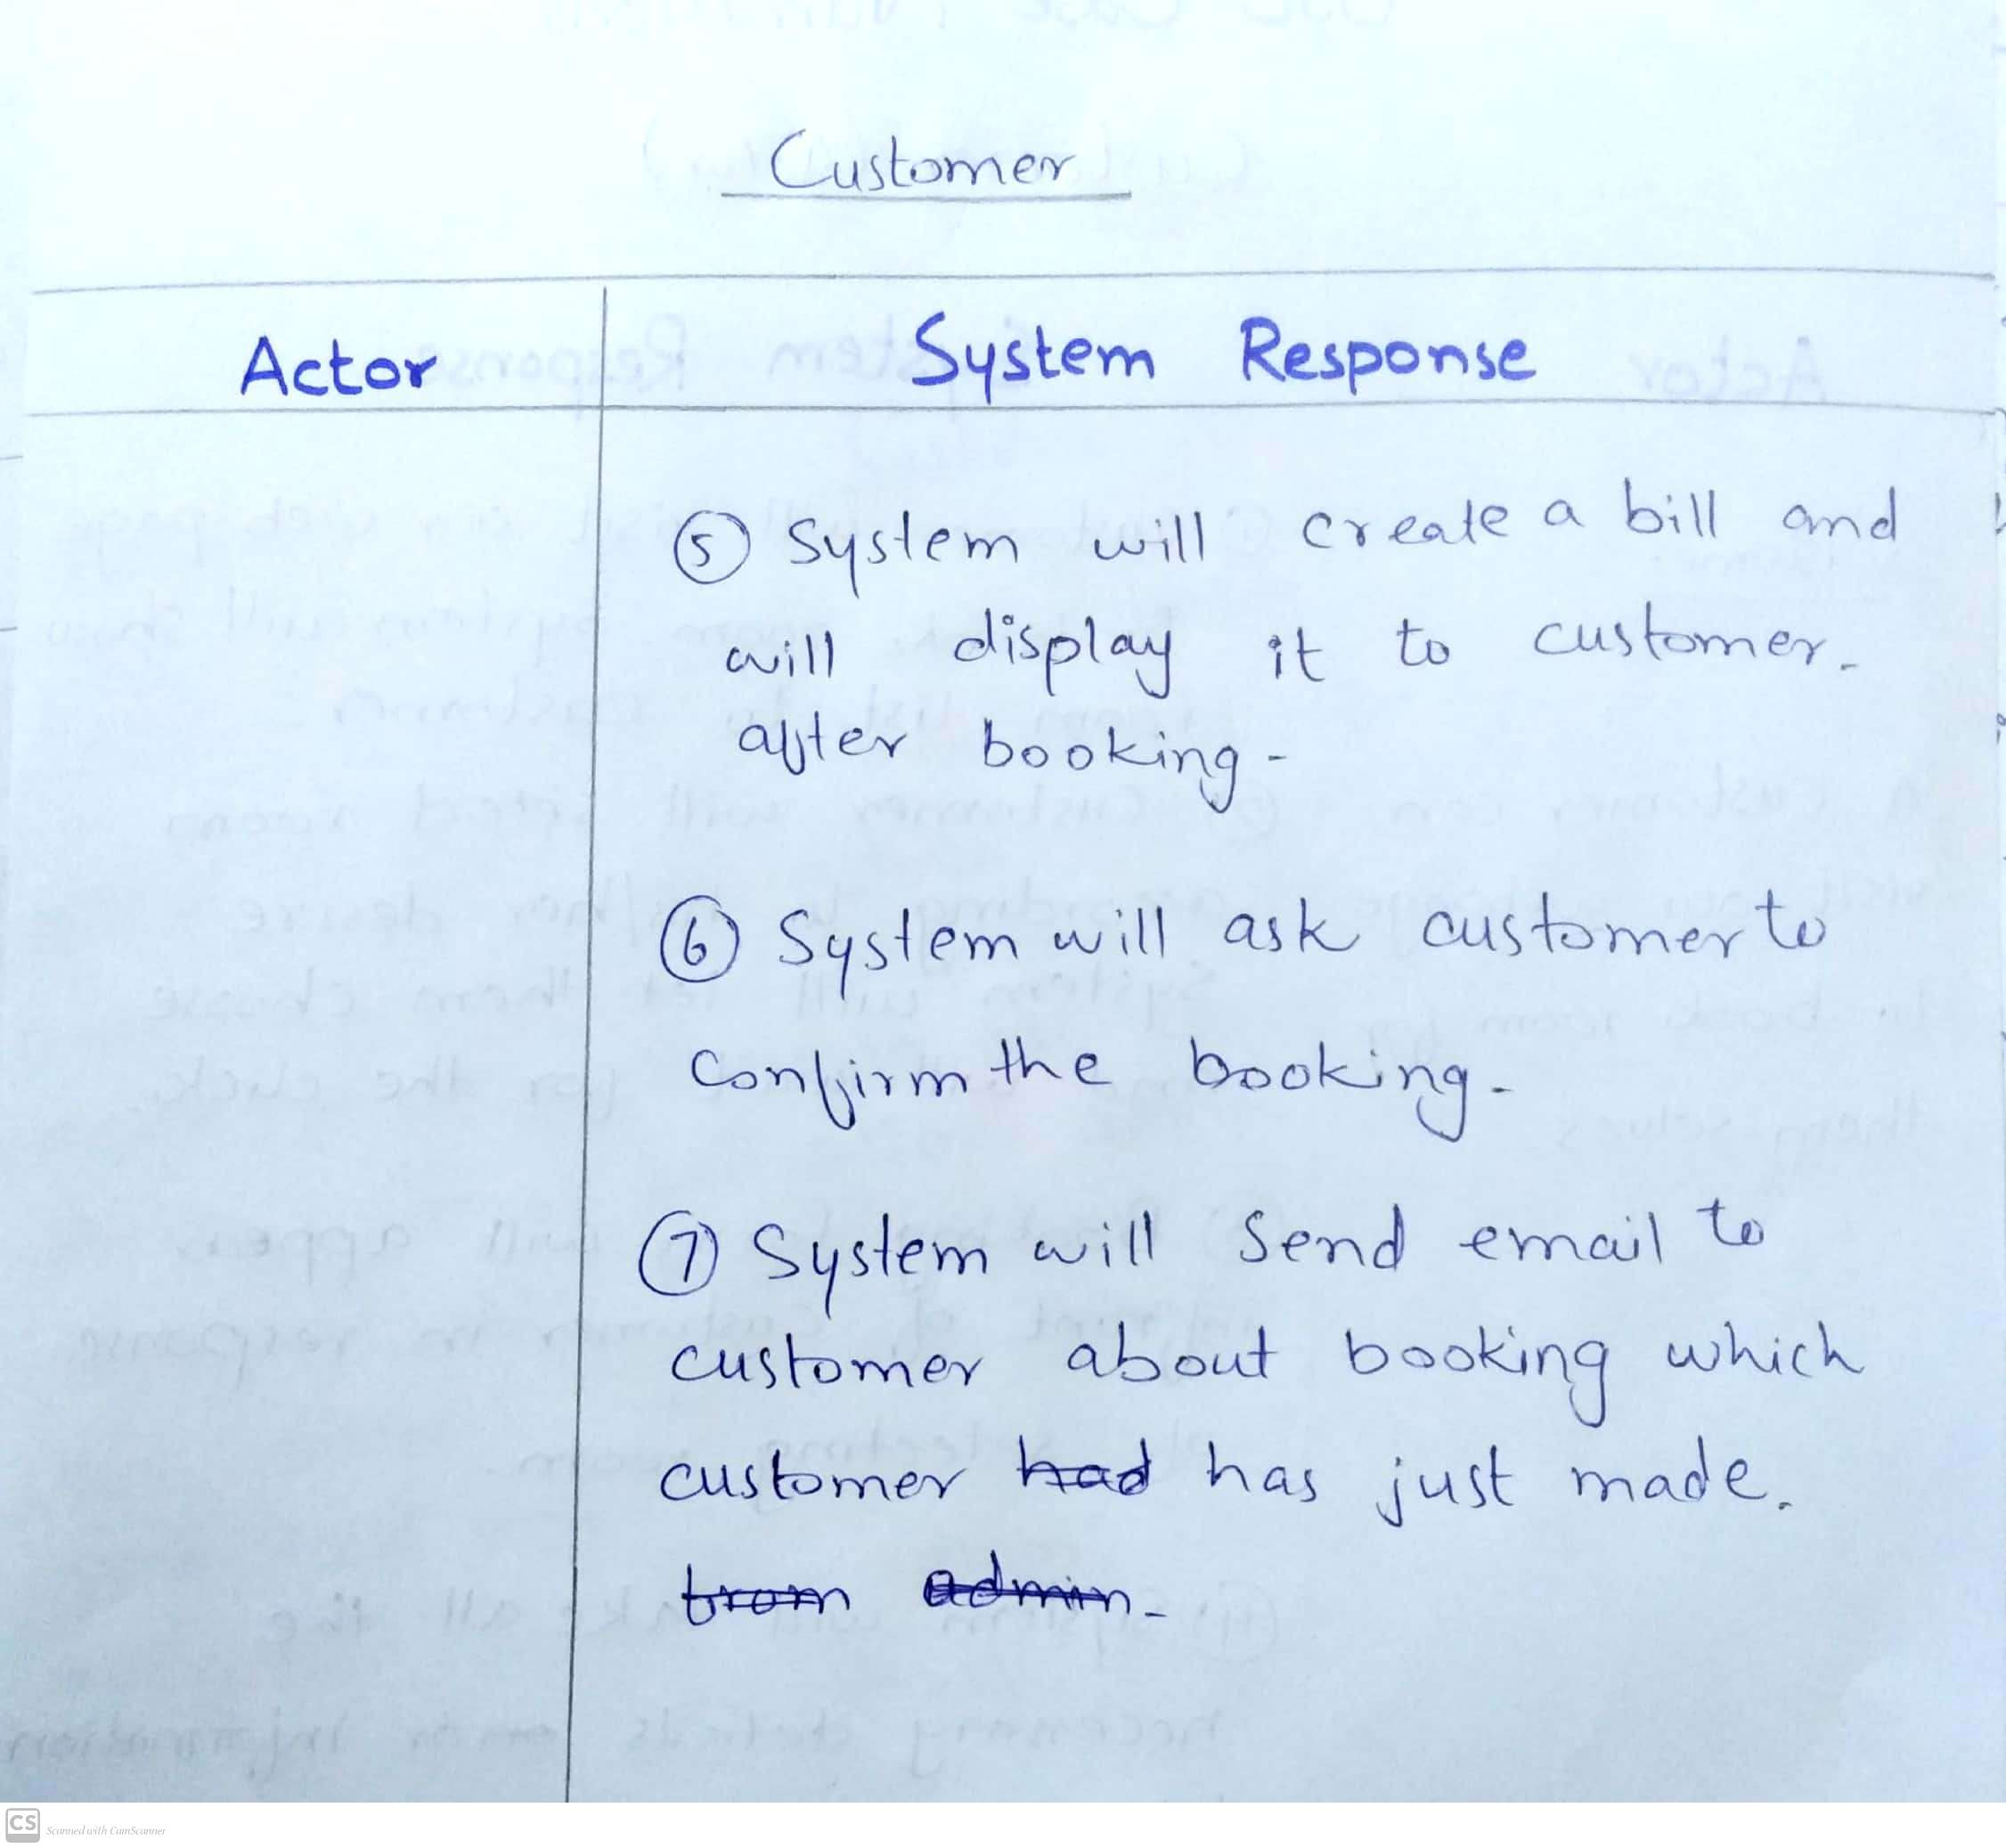 Customer
Actor System Response
⑤ System will create a bill and
will display it to customer.
after booking-
⑥ System will ask customer to
confirm the booking.
⑦ System will send email to
customer about booking which
customer had has just made.
from admin-
CS Scanned with CamScanner